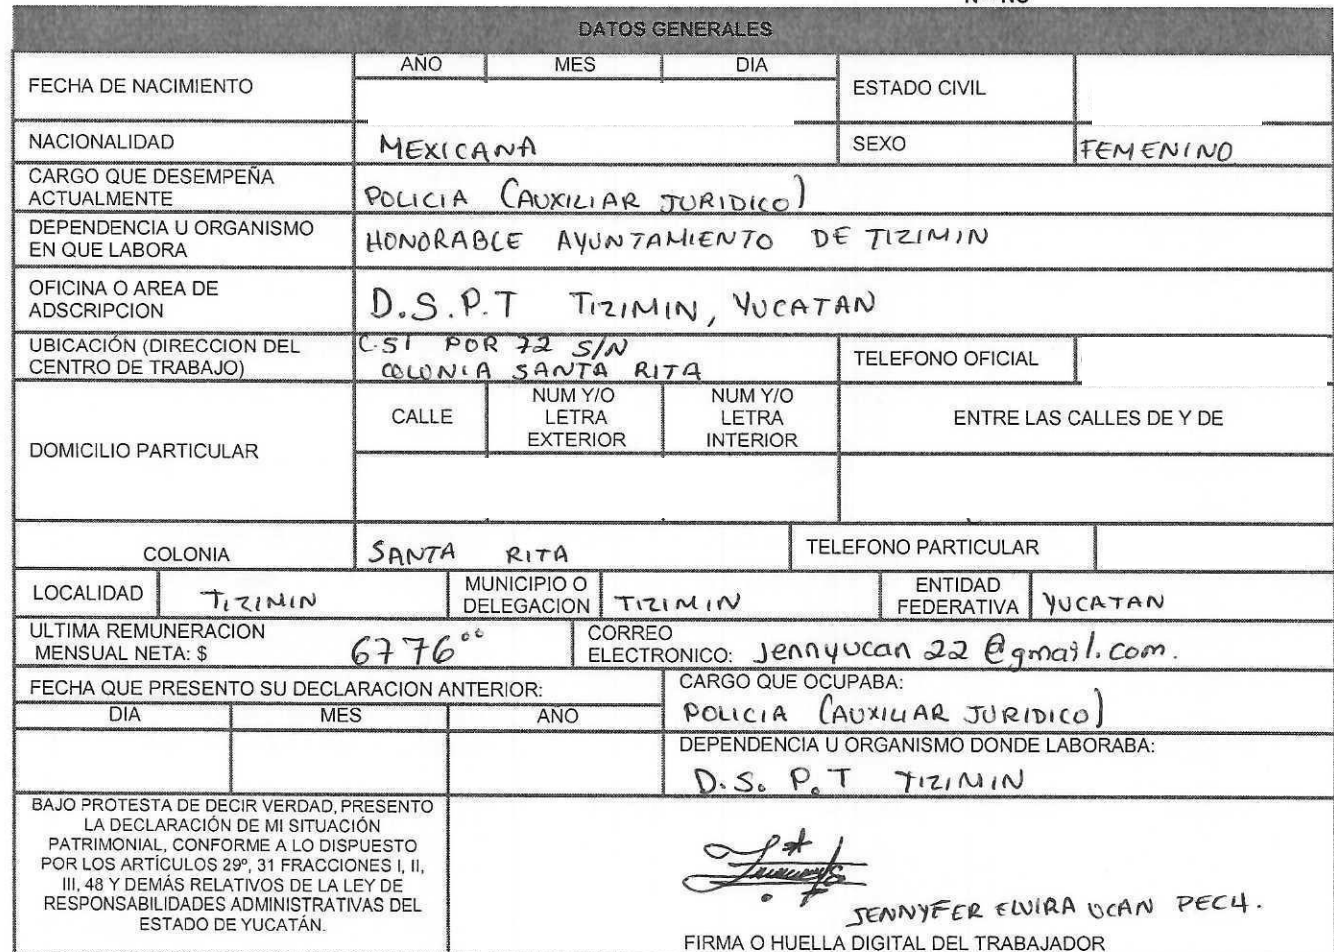 DATOS GENERALES
FECHA DE NACIMIENTO
AÑO MES DIA
ESTADO CIVIL
NACIONALIDAD MEXICANA SEXO FEMENINO
CARGO QUE DESEMPEÑA
ACTUALMENTE
POLICIA (AUXILIAR JURIDICO)
DEPENDENCIA U ORGANISMO
EN QUE LABORA
HONORABLE AYUNTAMIENTO DE TIZIMIN
OFICINA O AREA DE
ADSCRIPCION
D.S.P.T TIZIMIN, YUCATAN
UBICACIÓN (DIRECCION DEL
CENTRO DE TRABAJO)
C.51 POR 72 S/N
COLONIA SANTA RITA
TELEFONO OFICIAL
DOMICILIO PARTICULAR
CALLE
NUM Y/O
LETRA
EXTERIOR
NUM Y/O
LETRA
INTERIOR
ENTRE LAS CALLES DE Y DE
COLONIA SANTA RITA TELEFONO PARTICULAR
LOCALIDAD TIZIMIN
MUNICIPIO O
DELEGACION
TIZIMIN
ENTIDAD
FEDERATIVA
YUCATAN
ULTIMA REMUNERACION
MENSUAL NETA: $ 6776°°
CORREO
ELECTRONICO: Jennyucan22@gmail.com.
FECHA QUE PRESENTO SU DECLARACION ANTERIOR:
DIA MES ANO
CARGO QUE OCUPABA:
POLICIA (AUXILIAR JURIDICO)
DEPENDENCIA U ORGANISMO DONDE LABORABA:
D.S. P.T TIZIMIN
BAJO PROTESTA DE DECIR VERDAD, PRESENTO
LA DECLARACIÓN DE MI SITUACIÓN
PATRIMONIAL, CONFORME A LO DISPUESTO
POR LOS ARTÍCULOS 29º, 31 FRACCIONES I, II,
III, 48 Y DEMÁS RELATIVOS DE LA LEY DE
RESPONSABILIDADES ADMINISTRATIVAS DEL
ESTADO DE YUCATÁN.
JENNYFER ELVIRA UCAN PECH.
FIRMA O HUELLA DIGITAL DEL TRABAJADOR